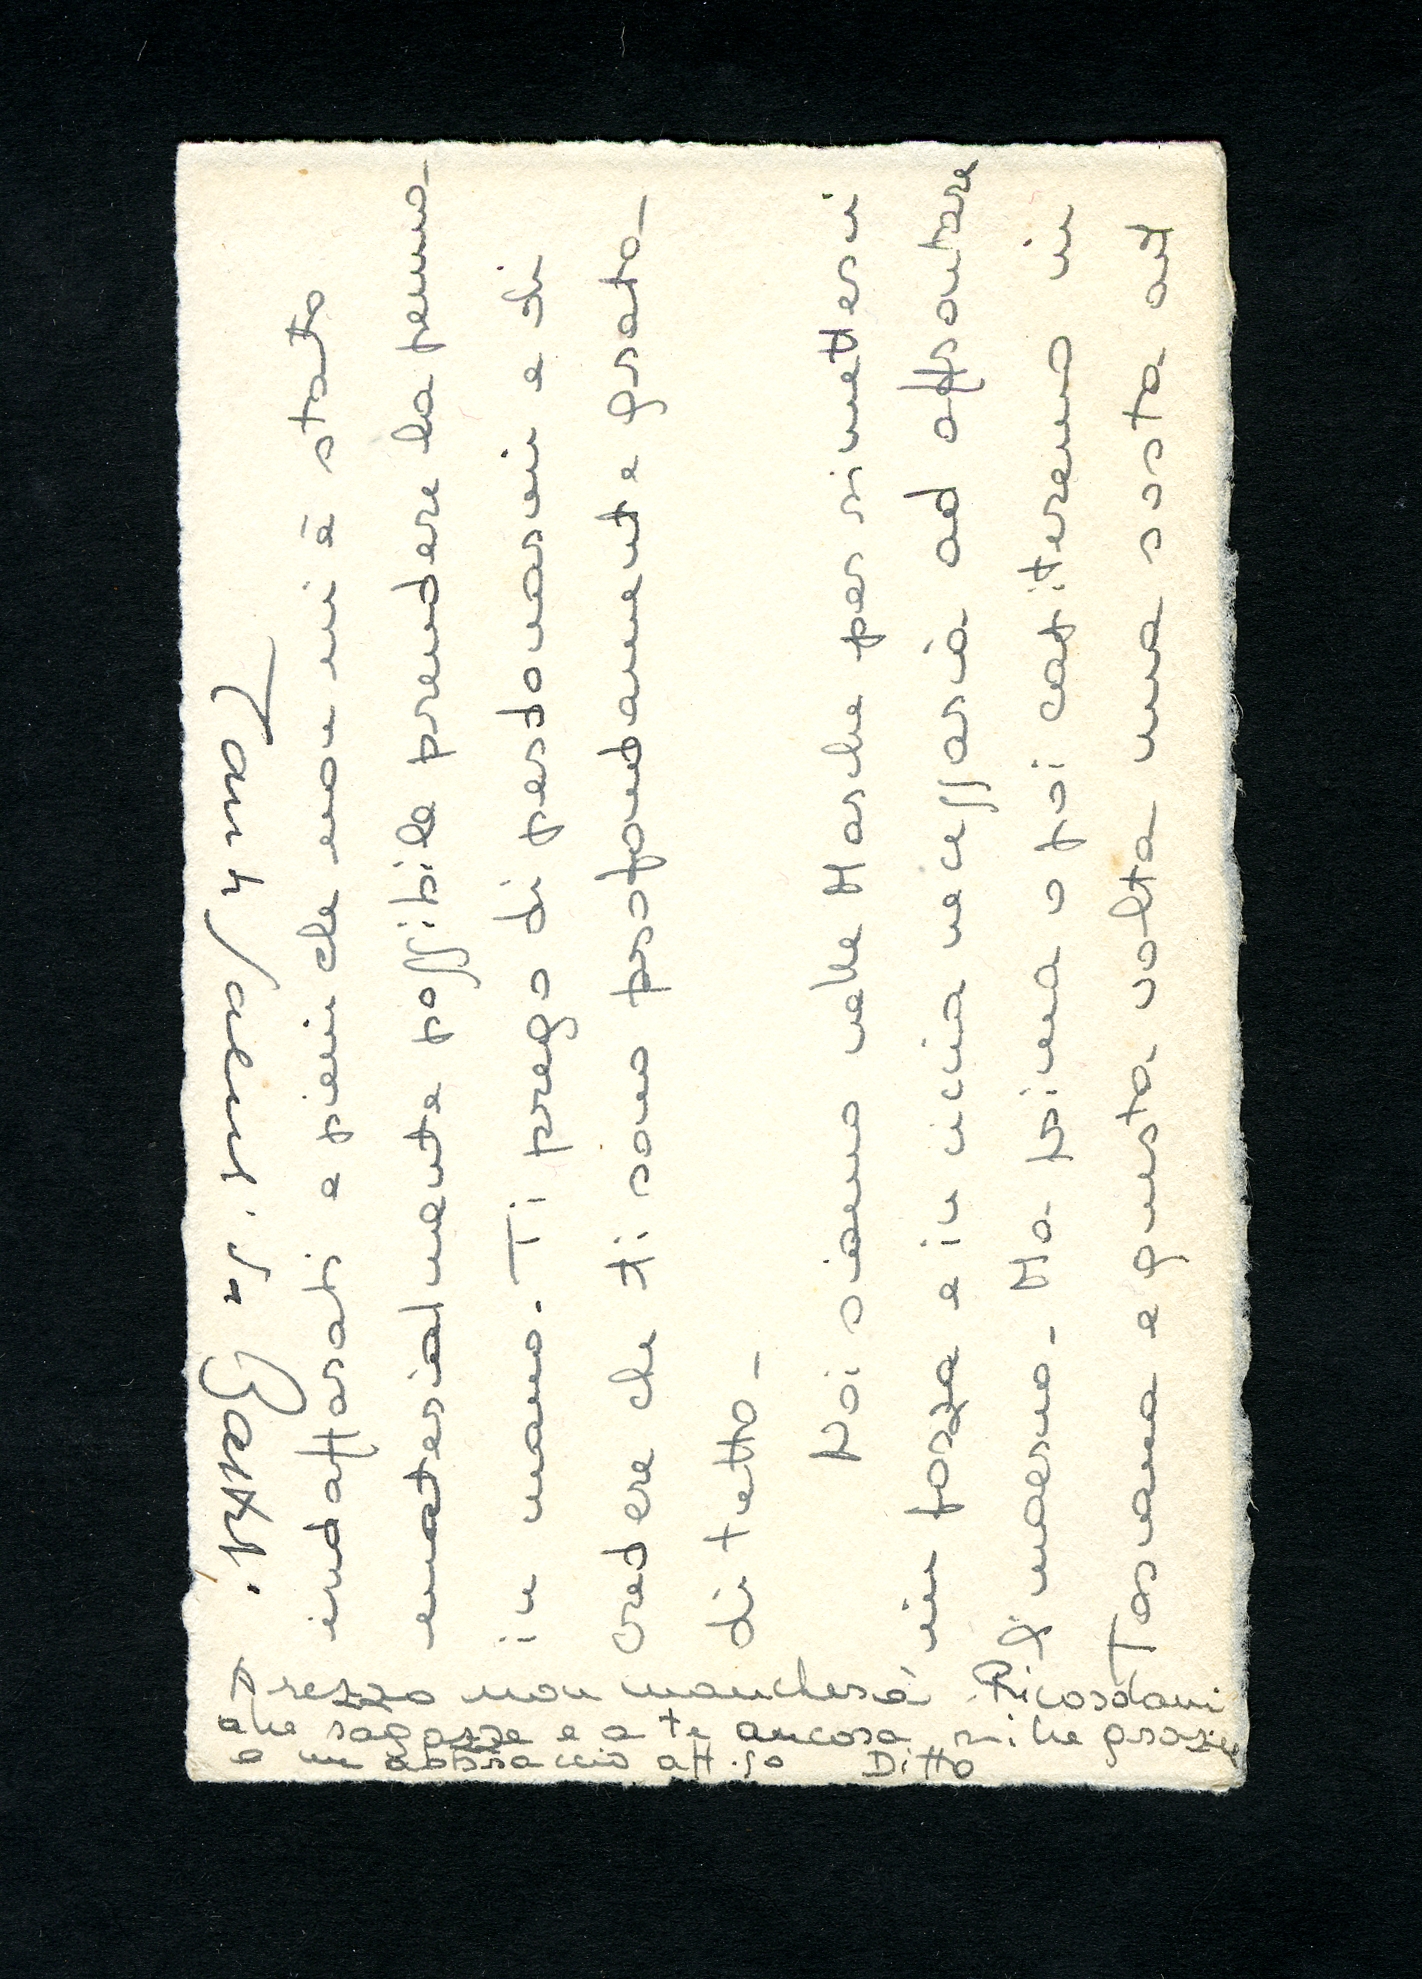 indaffarati e pieni che non mi è stato
materialmente possibile prendere la penna
in mano. Ti prego di perdonarmi e di
credere che ti sono profondamente grato
di tutto_
Noi siamo nelle Marche per rimetterci
in forze e in ciccia necessaria ad affrontare
l'inverno_ Ma prima o poi capiteremo in
Toscana e questa volta una sosta ad
Arezzo non mancherà. Ricordami
alle ragazze e a te ancora mille grazie
e un abbraccio aff.so Ditto
Tanti